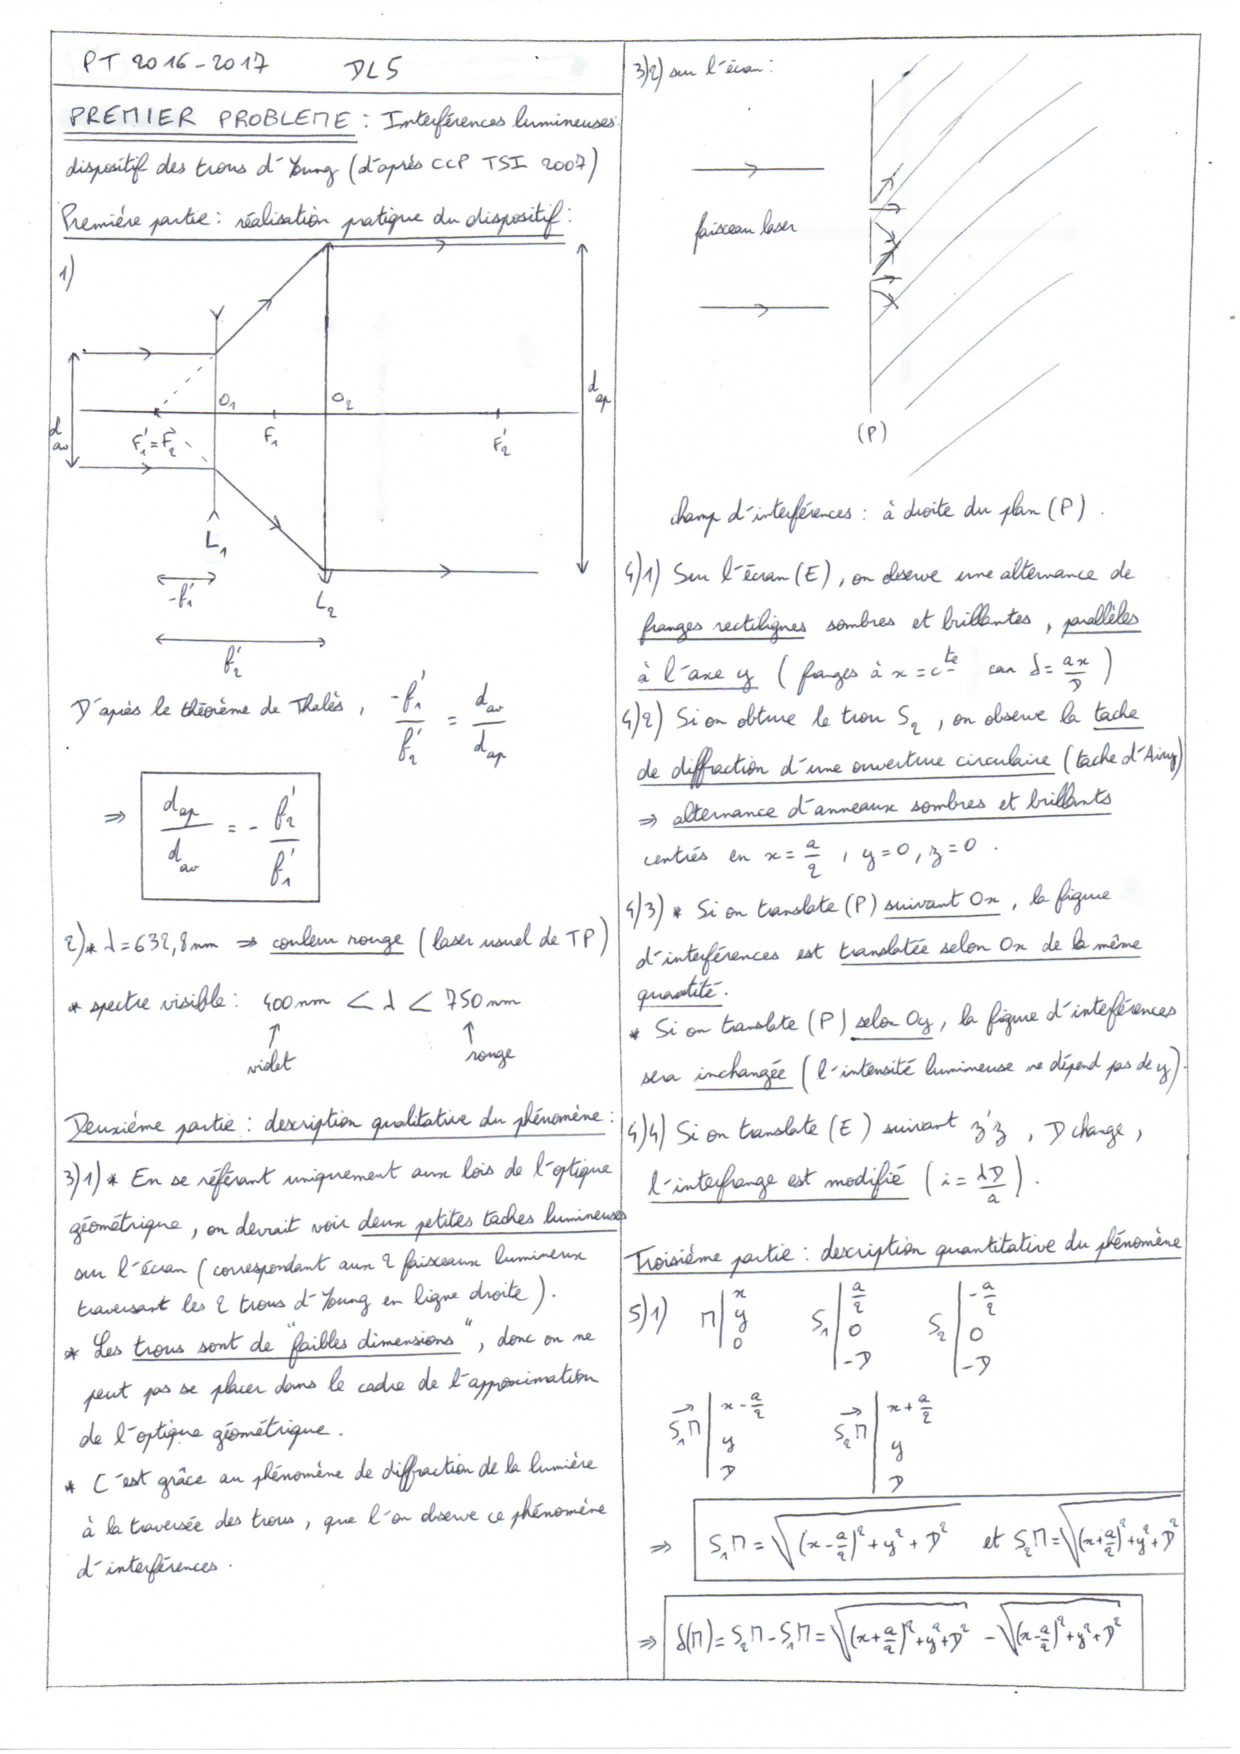 PT 2016-2017 DL5
PREMIER PROBLEME : Interférences lumineuses :
dispositif des trous d'Young (d'après CCP TSI 2007)
Première partie : réalisation pratique du dispositif :
1)
d_av
O_1
O_2
F'_1 = F_2
F_1
F'_2
d_ap
L_1
-f'_1
L_2
f'_2
D'après le théorème de Thalès, -f'_1 / f'_2 = d_av / d_ap
⇒ d_ap / d_av = - f'_2 / f'_1
2) * λ = 632,8 nm ⇒ couleur rouge (laser usuel de TP)
* spectre visible : 400 nm < λ < 750 nm
↑ violet ↑ rouge
Deuxième partie : description qualitative du phénomène :
3)1) * En se référant uniquement aux lois de l'optique
géométrique, on devrait voir deux petites taches lumineuses
sur l'écran (correspondant aux 2 faisceaux lumineux
traversant les 2 trous d'Young en ligne droite).
* Les trous sont de "faibles dimensions", donc on ne
peut pas se placer dans le cadre de l'approximation
de l'optique géométrique.
* C'est grâce au phénomène de diffraction de la lumière
à la traversée des trous, que l'on observe ce phénomène
d'interférences.
3)2) sur l'écran :
faisceau laser
(P)
champ d'interférences : à droite du plan (P).
4)1) Sur l'écran (E), on observe une alternance de
franges rectilignes sombres et brillantes, parallèles
à l'axe y (franges à x = c^te car δ = ax/D)
4)2) Si on obture le trou S_2, on observe la tache
de diffraction d'une ouverture circulaire (tache d'Airy)
⇒ alternance d'anneaux sombres et brillants
centrés en x = a/2, y = 0, z = 0.
4)3) * Si on translate (P) suivant Ox, la figure
d'interférences est translatée selon Ox de la même
quantité.
* Si on translate (P) selon Oy, la figure d'interférences
sera inchangée (l'intensité lumineuse ne dépend pas de y).
4)4) Si on translate (E) suivant z'z, D change,
l'interfrange est modifié (i = λD/a).
Troisième partie : description quantitative du phénomène
5)1) M | x y 0 S_1 | a/2 0 -D S_2 | -a/2 0 -D
S_1M→ | x - a/2 y D S_2M→ | x + a/2 y D
⇒ S_1M = √((x - a/2)² + y² + D²) et S_2M = √((x + a/2)² + y² + D²)
⇒ δ(M) = S_2M - S_1M = √((x + a/2)² + y² + D²) - √((x - a/2)² + y² + D²)